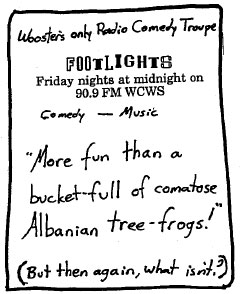 Wooster's only Radio Comedy Troupe
FOOTLIGHTS
Friday nights at midnight on
90.9 FM WCWS
Comedy — Music
"More fun than a
bucket-full of comatose
Albanian tree-frogs!"
(But then again, what isn't?)